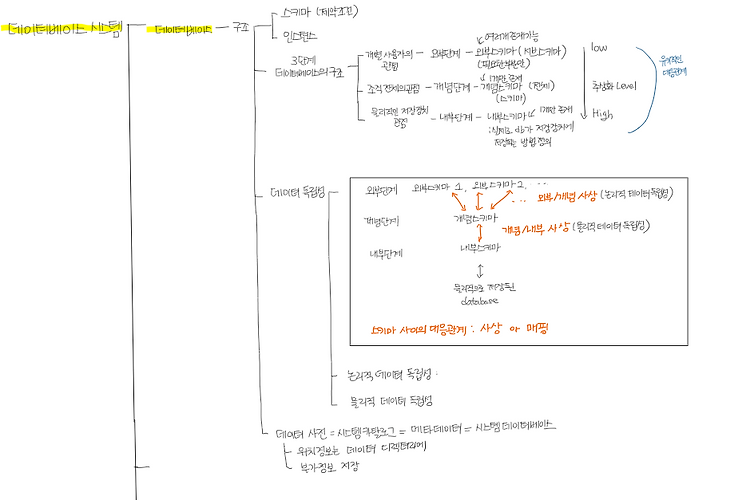 데이터베이스 시스템
데이터베이스 구조
스키마 (제약조건)
인스턴스
3단계
데이터베이스의 구조
개별 사용자의 관점 - 외부단계 - 외부스키마 (서브스키마)
여러개 존재가능
(필요한부분만)
조직 전체의 관점 - 개념단계 - 개념스키마 (전체)
1개만 존재
(스키마)
물리적인 저장장치 관점 - 내부단계 - 내부스키마
1개만 존재
: 실제로 db가 저장장치에
저장되는 방법 정의
low
추상화 Level
High
유기적인
대응관계
데이터 독립성
외부단계 외부스키마 1, 외부스키마 2, ...
... 외부/개념 사상 (논리적 데이터 독립성)
개념단계 개념스키마
개념/내부 사상 (물리적 데이터 독립성)
내부단계 내부스키마
물리적으로 저장된
database
스키마 사이의 대응관계 : 사상 or 매핑
논리적 데이터 독립성 :
물리적 데이터 독립성
데이터 사전 = 시스템카탈로그 = 메타데이터 = 시스템 데이터베이스
위치정보는 데이터 디렉터리에
부가정보 저장